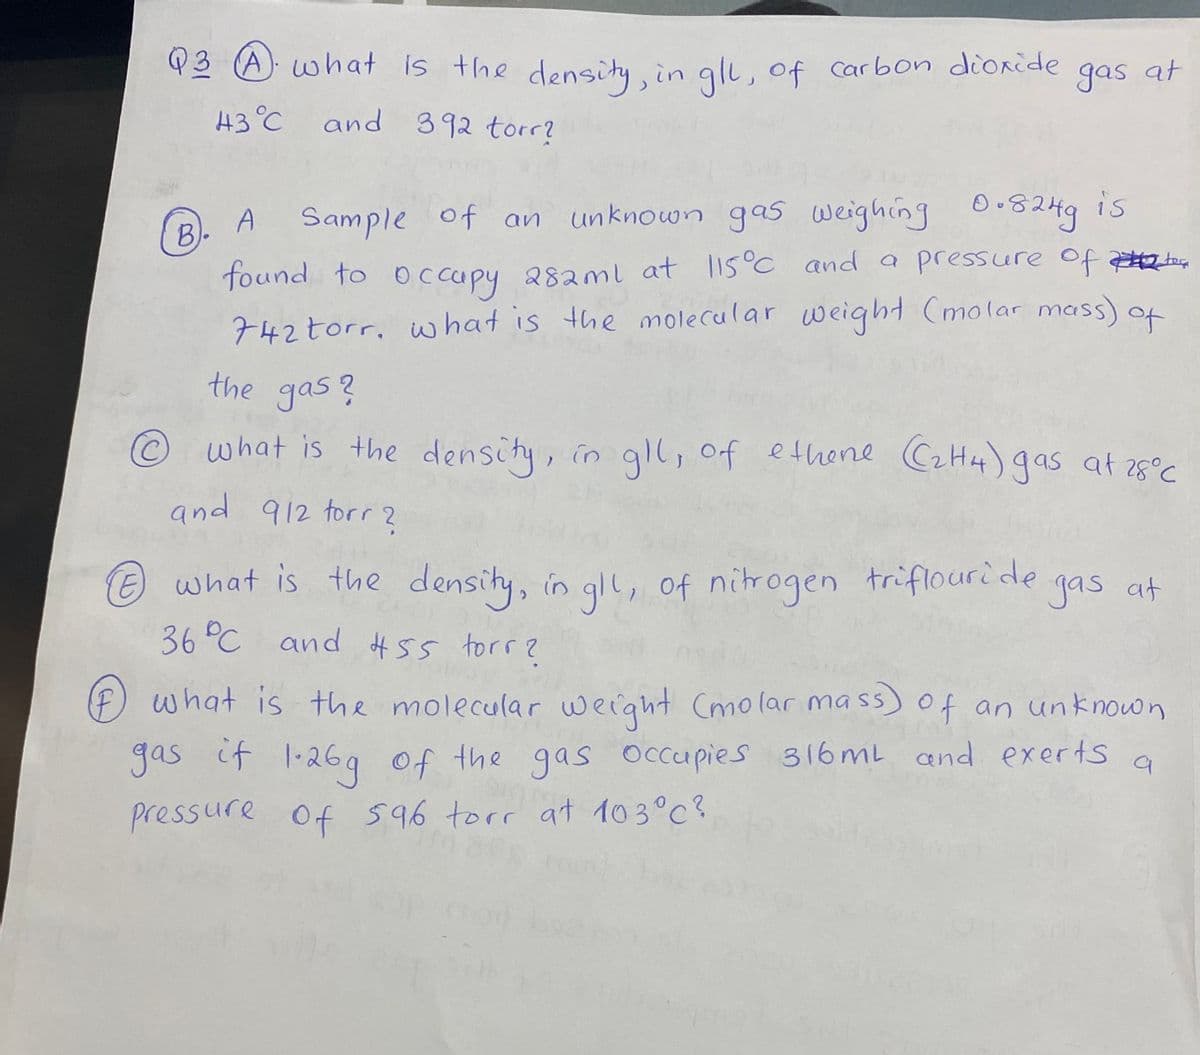 Q3 (A). what is the density, in g/L, of carbon dioxide gas at
43°C and 392 torr?
(B). A Sample of an unknown gas weighing 0.824g is
found to occupy 282ml at 115°C and a pressure of
742torr. what is the molecular weight (molar mass) of
the gas?
(C) what is the density, in g/l, of ethene (C2H4) gas at 28°C
and 912 torr?
(E) what is the density, in g/l, of nitrogen triflouride gas at
36°C and 455 torr?
(F) what is the molecular weight (molar mass) of an unknown
gas if 1.26g of the gas occupies 316mL and exerts a
pressure of 596 torr at 103°C?